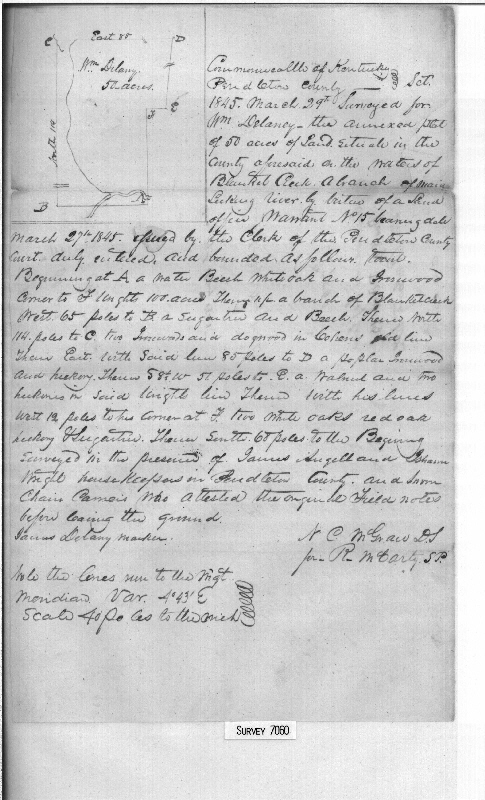 C East 85 D
Wm Delany
50 acres.
E
F
North 114
B
Commonwealth of Kentucky
Pendleton County Sct.
1845. March. 29th Surveyed for
Wm. Delaney - the annexed plat
of 50 acres of Land. Situate in the
County aforesaid on the waters of
Blanket Creek A branch of main
Licking river. by virtue of a
office Warrant No 15 bearing date
March 27th 1845. issued by the Clerk of the Pendleton County
Court duly entered, and bounded As follows. Towit.
Beginning at A a water Beech White oak and Ironwood
Corner to F Wright 100. acres Thence up a branch of Blanket creek
West 65 poles to B a Sugartree and Beech. Thence North
114. poles to C. two Ironwoods and dogwood in old line
Thence East. with Said line 85 poles to D a poplar Ironwood
And hickory. Thence W 51 poles to. E. a Walnut and two
hickories in Said Wright line Thence With his lines
West 12 poles to his Corner at F. two White oaks red oak
hickory & Sugartree. Thence South. 60 poles to the Begining
Surveyed in the presence of James Angell and
Wright housekeepers in Pendleton County. and Sworn
Chain Carriers Who Attested the original Field notes
before leaving the ground.
James Delany marker.
N C McGraw D.S
for R. McCarty S.P.
Note the lines run to the Magt
Meridian Var. 4° 43' E
Scale 40 poles to the inch
SURVEY 7060